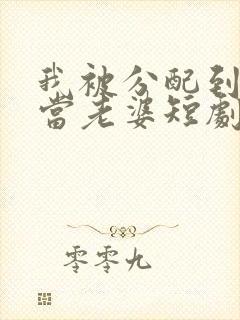 我被分配到
當老婆短劇
零零九